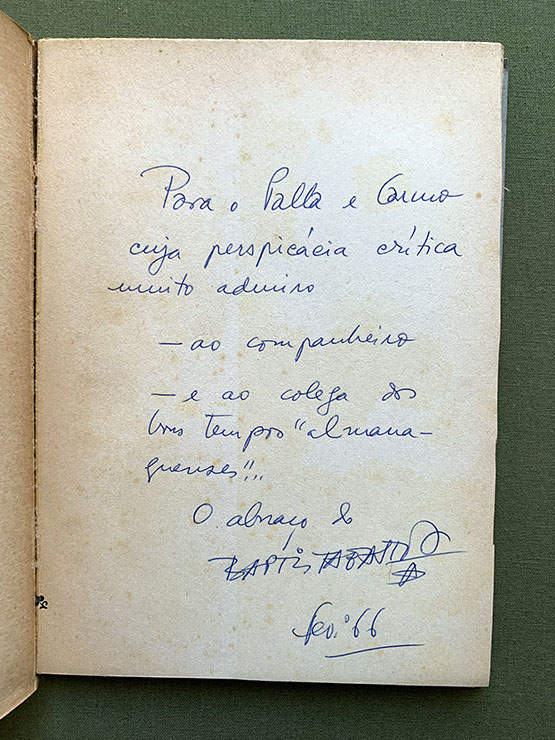 Para o Palla e Carmo
cuja perspicácia crítica
muito admiro
— ao companheiro
— e ao colega dos
bons tempos "almana-
quenses"...
O abraço do
BAPTISTA BASTOS
Fev.º 66